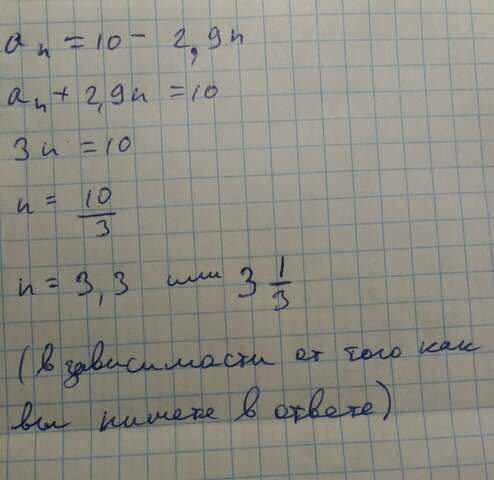 aₙ = 10 - 2,9n
aₙ + 2,9n = 10
3n = 10
n = 10/3
n = 3,3 или 3 1/3
(в зависимости от того как
вы пишете в ответе)